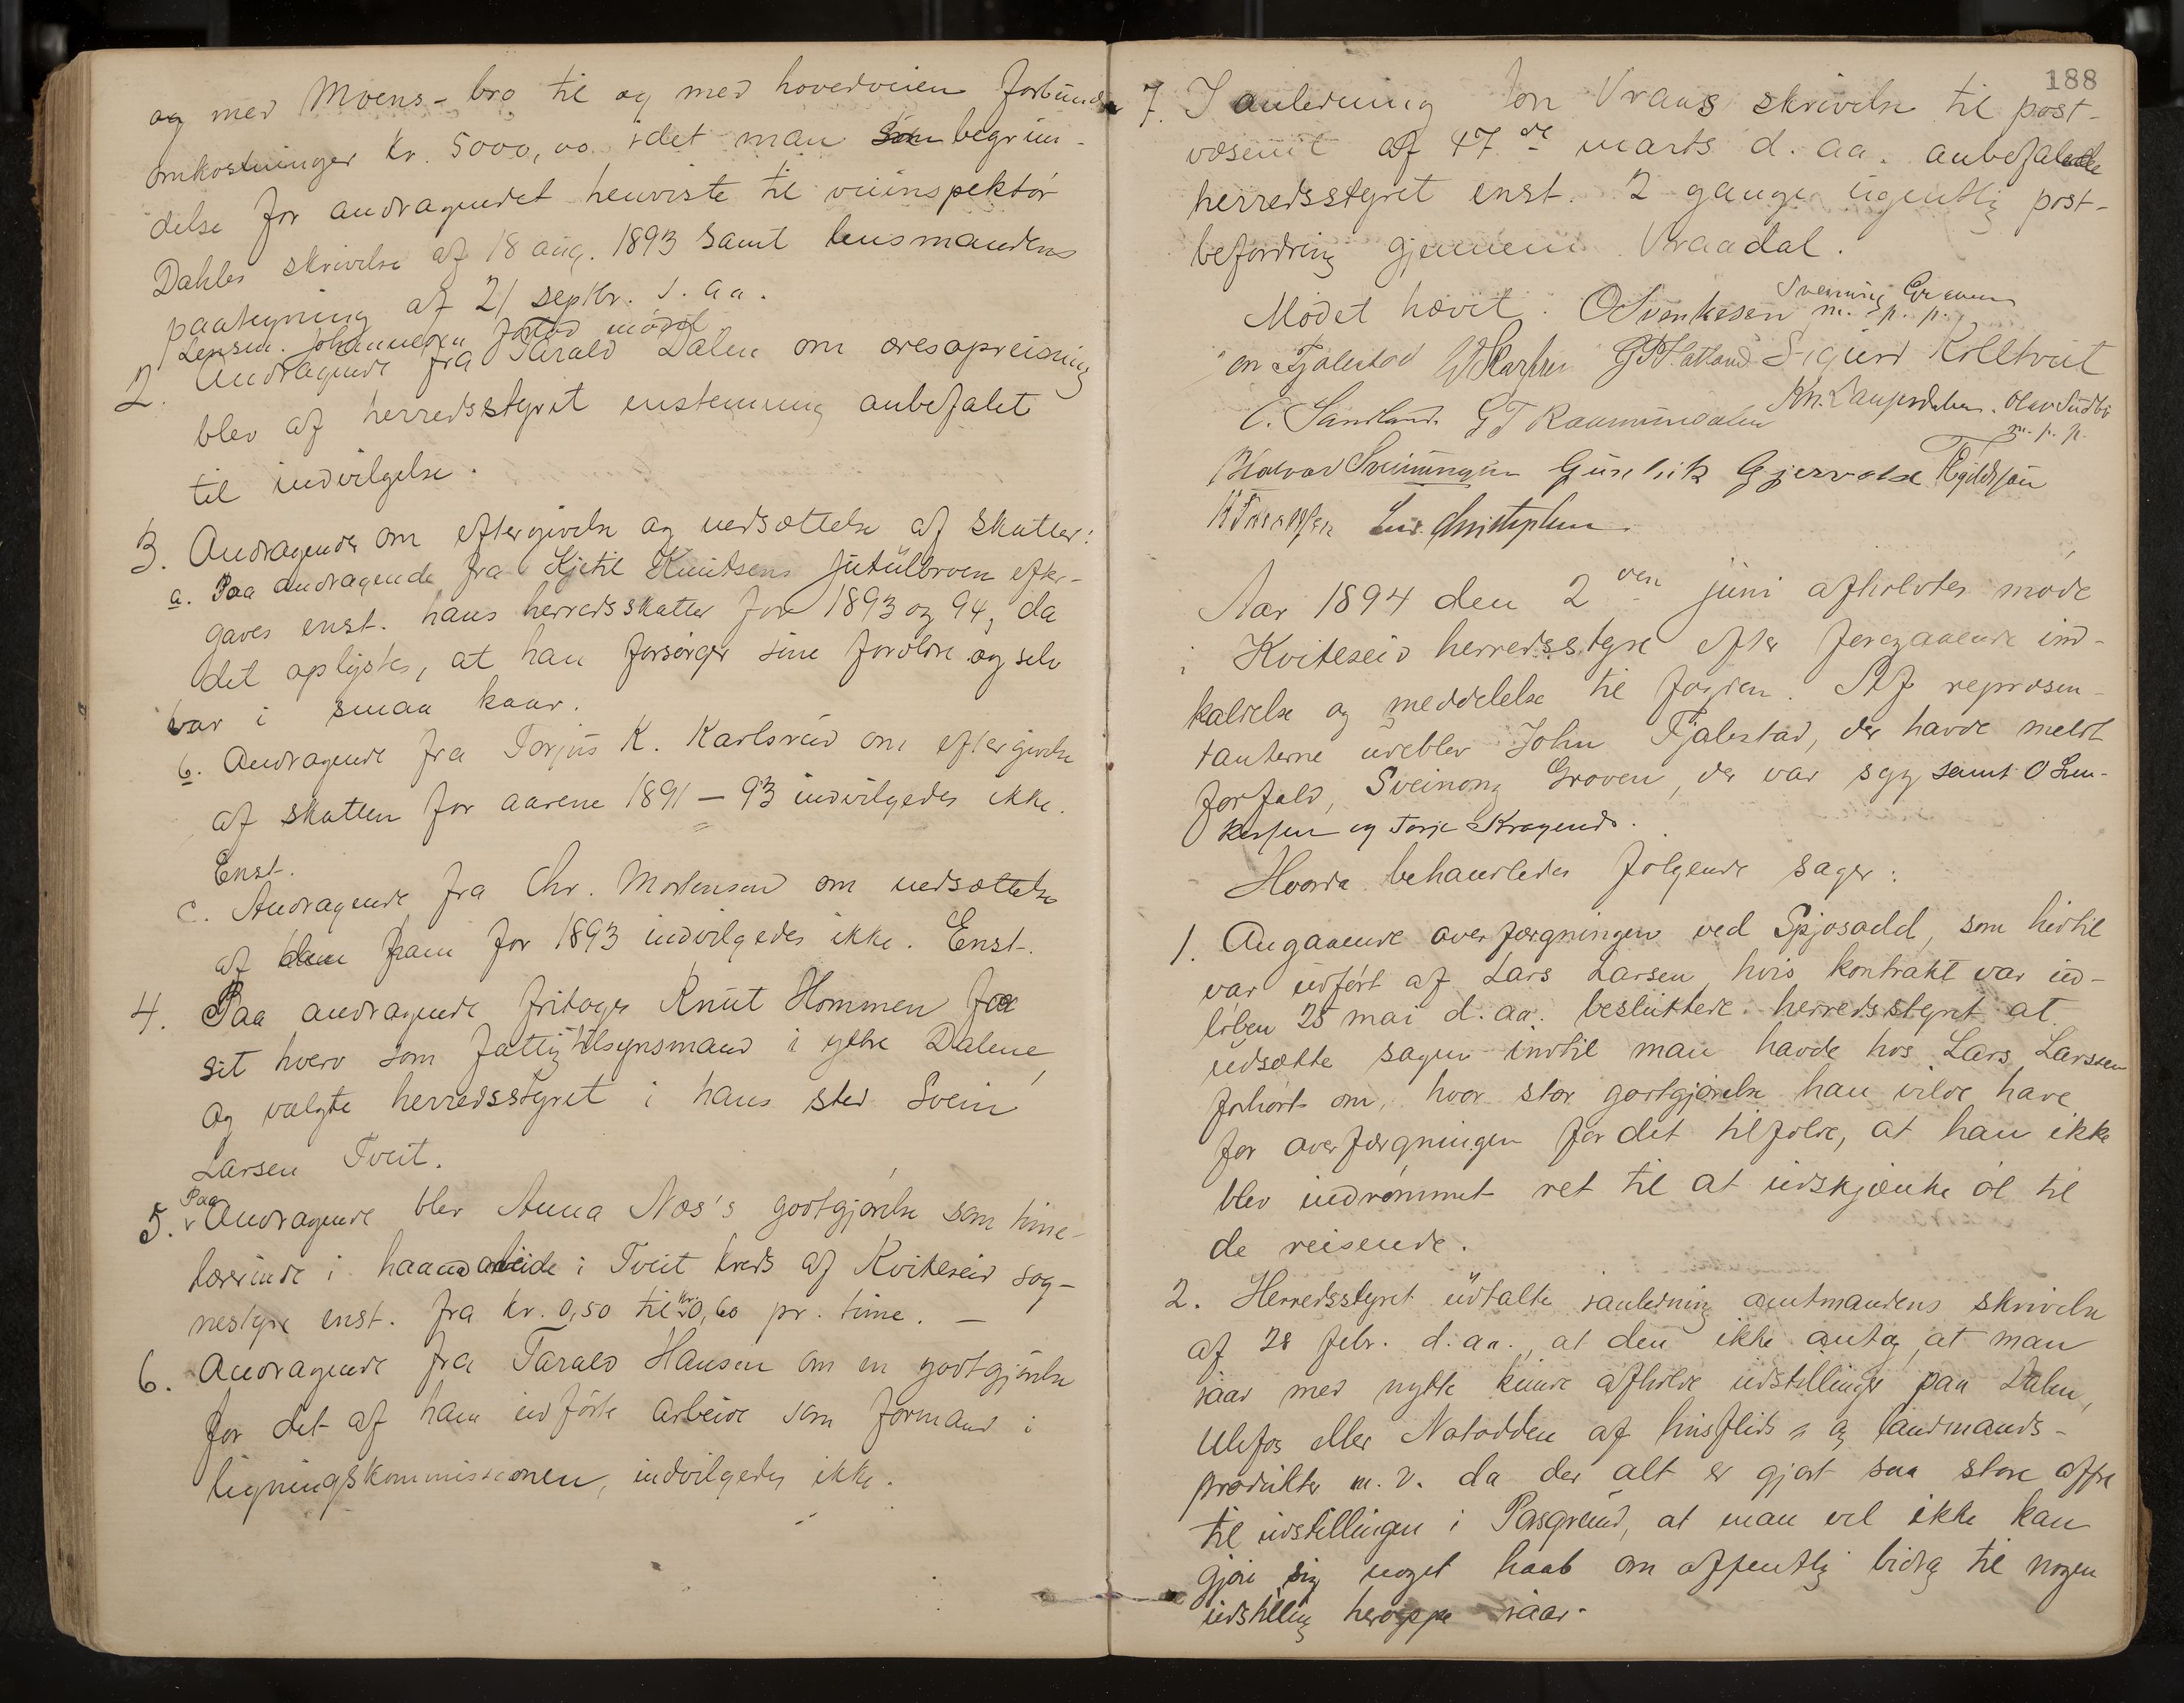 og med Moens-bro til og med hovedveien forbundne
omkostninger kr. 5000,00 idet man som begrun-
delse for andragendet henviste til veiinspektør
Dahles skrivelse af 18 aug. 1893 samt lensmandens
paategning af 21 septbr. s. aa.
Lensm. Johannesen forlod mødet
2. Andragende fra Tarald Dalen om æresopreisning
blev af herredsstyret enstemmig anbefalet
til indvilgelse.
3. Andragende om eftergivelse og nedsættelse af skatter:
a. Paa andragende fra Kjetil Knudsen efter-
gaves enst. hans herredsskatter for 1893 og 94, da
det oplystes, at han forsørger sine forældre og selv
var i smaa kaar.
b. Andragende fra Torjus K. Karlsveid om eftergivelse
af skatten for aarene 1891 – 93 indvilgedes ikke.
Enst.
c. Andragende fra Chr. Mortensen om nedsættelse
af for 1893 indvilgedes ikke. Enst.
4. Paa andragende fritoges Knut Hommen fra
sit hverv som fattigtilsynsmand i ytre Dalene,
og valgte herredsstyret i hans sted Svein
Larsen Tveit.
5. Paa Andragende blev Anna Næs's godtgjørelse som time-
lærerinde i haandarbeide i Tveit kreds af Kviteseid sog-
nestyre enst. fra kr. 0,50 til kr. 0,60 pr. time. —
6. Andragende fra Tarald Hansen om en godtgjørelse
for det af ham udførte arbeide som formand i
ligningskommissionen, indvilgedes ikke.
188
7. I anledning Jon Vraas skrivelse til post-
væsenet af 17de marts d. aa. anbefalede
herredsstyret enst. 2 gange ugentlig post-
befordring gjennem Vraadal.
Mødet hævet. O Svenkesen Sveinung Groven
m. p. p.
Jon Fjalestad Sigurd Killtveit
O. Sandland G T Raamundalen Olav Sudbø
m. p. p.
Halvor Sveinungsen Gunleik Gjervolse
Aar 1894 den 2den juni afholdtes møde
i Kviteseid herredsstyre efter foregaaende ind-
kaldelse og meddelelse til fogden. Af repræsen-
tanterne udeblev John Fjalestad, der havde meldt
forfald, Sveinong Groven, der var syg samt O Sven-
kessen og Torje Kragend.
Hvorda behandledes følgende sager:
1. Angaaende overfærgningen ved Spjosodd, som hidtil
var udført af Lars Larsen, hvis kontrakt var ud-
løben 25 mai d. aa. besluttede herredsstyret at
udsætte sagen indtil man havde hos Lars Larssen
forhørt om, hvor stor godtgjørelse han vilde have
for overfærgningen for det tilfælde, at han ikke
blev indrømmet ret til at udskjænke øl til
de reisende.
2. Herredsstyret udtalte ianledning amtmandens skrivelse
af 28 febr. d. aa., at den ikke antog, at man
iaar med nytte kunde afholde udstillinger paa Dalen,
Ulefos eller Notodden af husflids- og landmands-
produkter m. v. da der alt er gjort saa store offre
til udstillingen i Porsgrund, at man vel ikke kan
gjøre sig noget haab om offentlig bidrag til nogen
udstilling heroppe iaar.